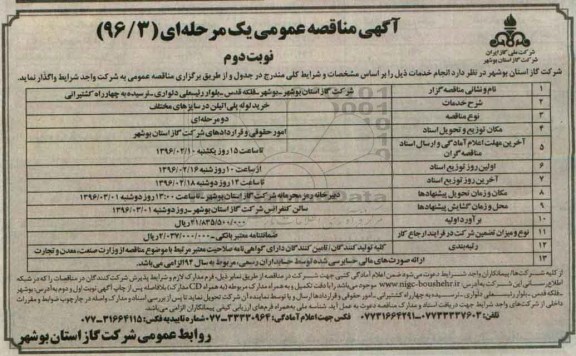 آگهی مناقصه عمومی یک مرحله‌ای (۹۶/۳)
نوبت دوم
شرکت ملی گاز ایران
شرکت گاز استان بوشهر
شرکت گاز استان بوشهر در نظر دارد انجام خدمات ذیل را بر اساس مشخصات و شرایط کلی مندرج در جدول و از طریق برگزاری مناقصه عمومی به شرکت واجد شرایط واگذار نماید.
۱ نام و نشانی مناقصه گزار شرکت گاز استان بوشهر - بوشهر - فلکه قدس - بلوار رئیسعلی دلواری - نرسیده به چهار راه کشتیرانی
۲ شرح خدمات خرید لوله پلی اتیلن در سایزهای مختلف
۳ نوع مناقصه دو مرحله‌ای
۴ مکان توزیع و تحویل اسناد امور حقوقی و قراردادهای شرکت گاز استان بوشهر
۵ آخرین مهلت اعلام آمادگی و ارسال اسناد مناقصه گران تا ساعت ۱۵ روز یکشنبه ۱۳۹۶/۰۲/۱۰
۶ اولین روز توزیع اسناد از ساعت ۱۰ روز شنبه ۱۳۹۶/۰۲/۱۶
۷ آخرین روز توزیع اسناد تا ساعت ۱۴ روز دوشنبه ۱۳۹۶/۰۲/۱۸
۸ مکان و زمان تحویل پیشنهادها دبیرخانه رمز محرمانه شرکت گاز استان بوشهر - تا ساعت ۱۳:۰۰ روز دوشنبه ۱۳۹۶/۰۳/۰۱
۹ محل و زمان گشایش پیشنهادها سالن کنفرانس شرکت گاز استان بوشهر - روز دوشنبه ۱۳۹۶/۰۳/۰۱
۱۰ برآورد اولیه ۲۱/۸۳۵/۵۰۰/۰۰۰ ریال
۱۱ نوع و میزان تضمین شرکت در فرایند ارجاع کار ضمانتنامه معتبر بانکی - ۲/۰۳۷/۰۰۰/۰۰۰ ریال
۱۲ رتبه‌بندی کلیه تولید کنندگان / تامین کنندگان دارای گواهی نامه صلاحیت معتبر مرتبط با موضوع مناقصه از وزارت صنعت، معدن و تجارت
۱۳ ارائه صورت های مالی حسابرسی شده توسط حسابداران رسمی، مربوط به سال ۹۴ الزامی می‌باشد.
از کلیه شرکت‌ها / پیمانکاران واجد شرایط دعوت می‌شود ضمن اعلام آمادگی کتبی جهت شرکت در مناقصه
اطلاع رسانی این شرکت به آدرس www.nigc-booshehr.ir موجود می‌باشد
تلفن: ۰۷۷۳۳۳۳۷۶۰۳ - ۰۷۷۳۱۶۶۴۲۹۱ فکس جهت اعلام آمادگی: ۳۳۳۳۰۹۶۴-۰۷۷ شماره تاییدیه فکس: ۳۱۶۶۴۱۱۵-۰۷۷
روابط عمومی شرکت گاز استان بوشهر